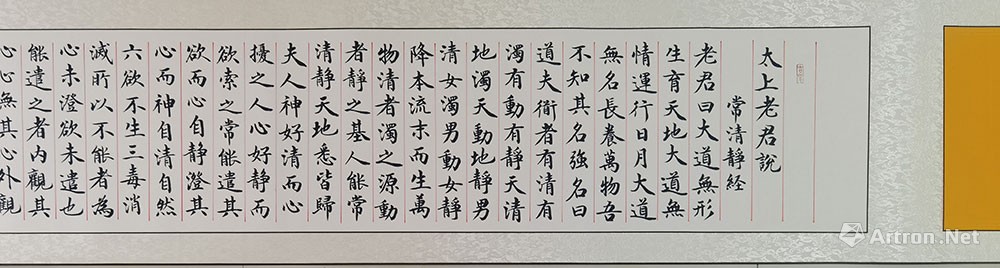 太上老君說
常清靜経
老君曰大道無形
生育天地大道無
情運行日月大道
無名長養萬物吾
不知其名強名曰
道夫衜者有清有
濁有動有靜天清
地濁天動地靜男
清女濁男動女靜
降本流末而生萬
物清者濁之源動
者靜之基人能常
清靜天地悉皆歸
夫人神好清而心
擾之人心好静而
欲牽之常能遣其
欲而心自静澄其
心而神自清自然
六欲不生三毒消
滅所以不能者為
心未澄欲未遣也
能遣之者内觀其
心心無其心外觀
Artron.Net